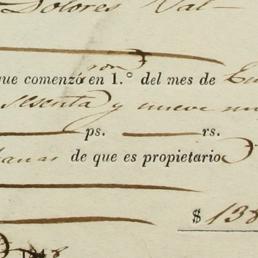 Dolores Val
que comenzó en 1.° del mes de
sesenta y nueve
ps. rs.
de que es propietario
$ 138